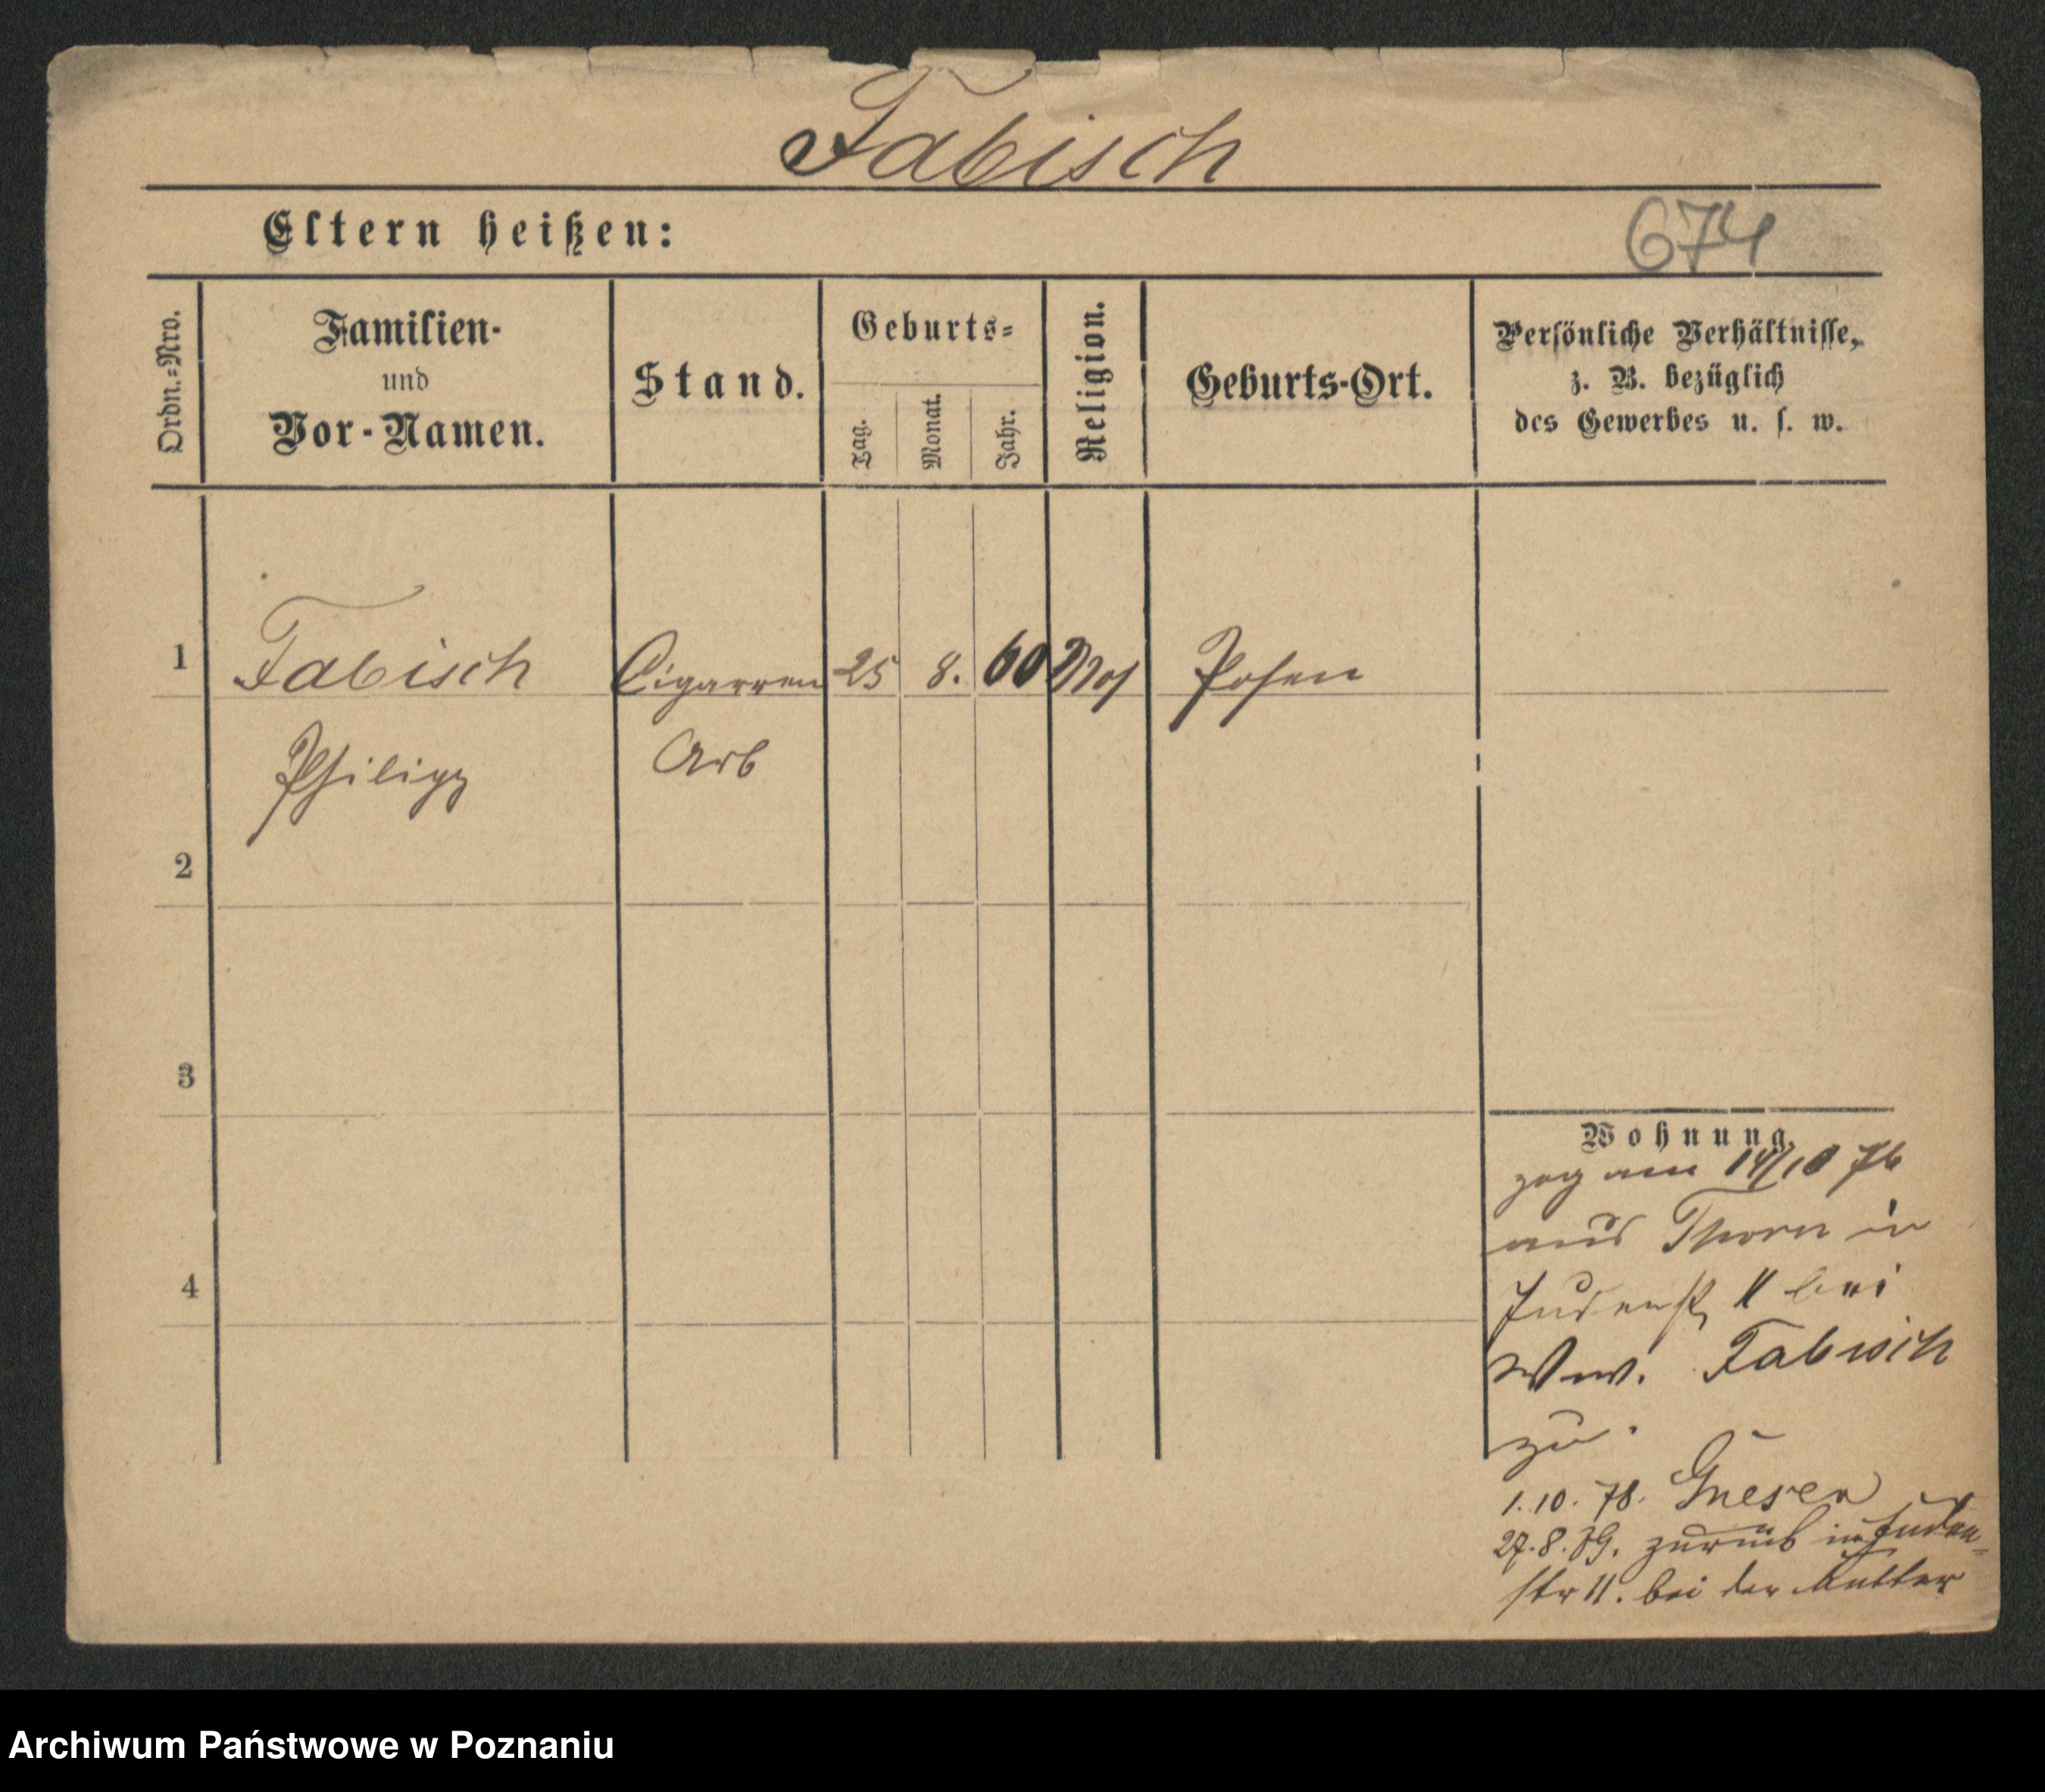 Fabisch
Eltern heißen:
674
Ordn.=Nro.
Familien-
und
Vor-Namen.
Stand.
Geburts=
Tag.
Monat.
Jahr.
Religion.
Geburts-Ort.
Persönliche Verhältnisse,
z. B. bezüglich
des Gewerbes u. s. w.
1
Fabisch
Cigarren
25
8.
60
Mos
Posen
Philipp
Arb
2
3
4
Wohnung.
zog am 14/10 76
aus Thorn in
Judenstr 11 bei
Ww. Fabisch
zu.
1.10.78. Gnesen
27.8.79. zurück in Juden-
str 11. bei der Mutter
Archiwum Państwowe w Poznaniu